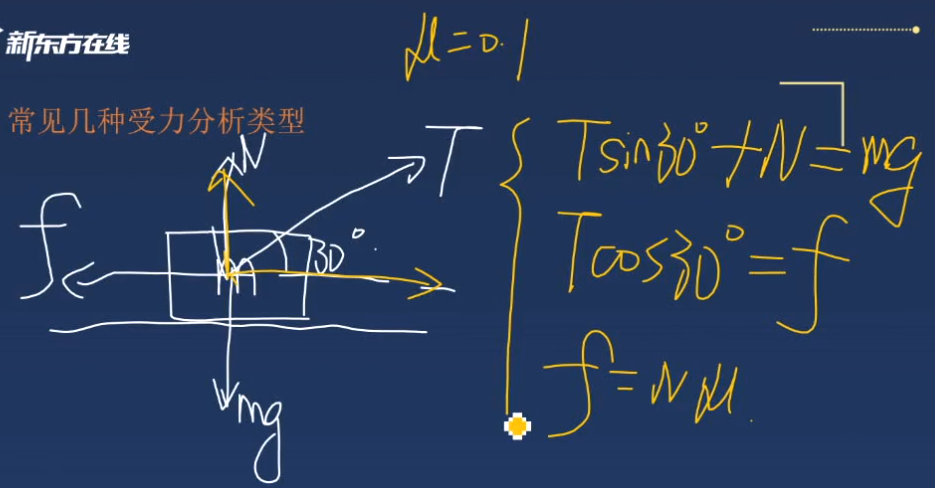 新东方在线
μ=0.1
常见几种受力分析类型
N
T
f
30°
m
mg
Tsin30°+N=mg
Tcos30°=f
f=Nμ.